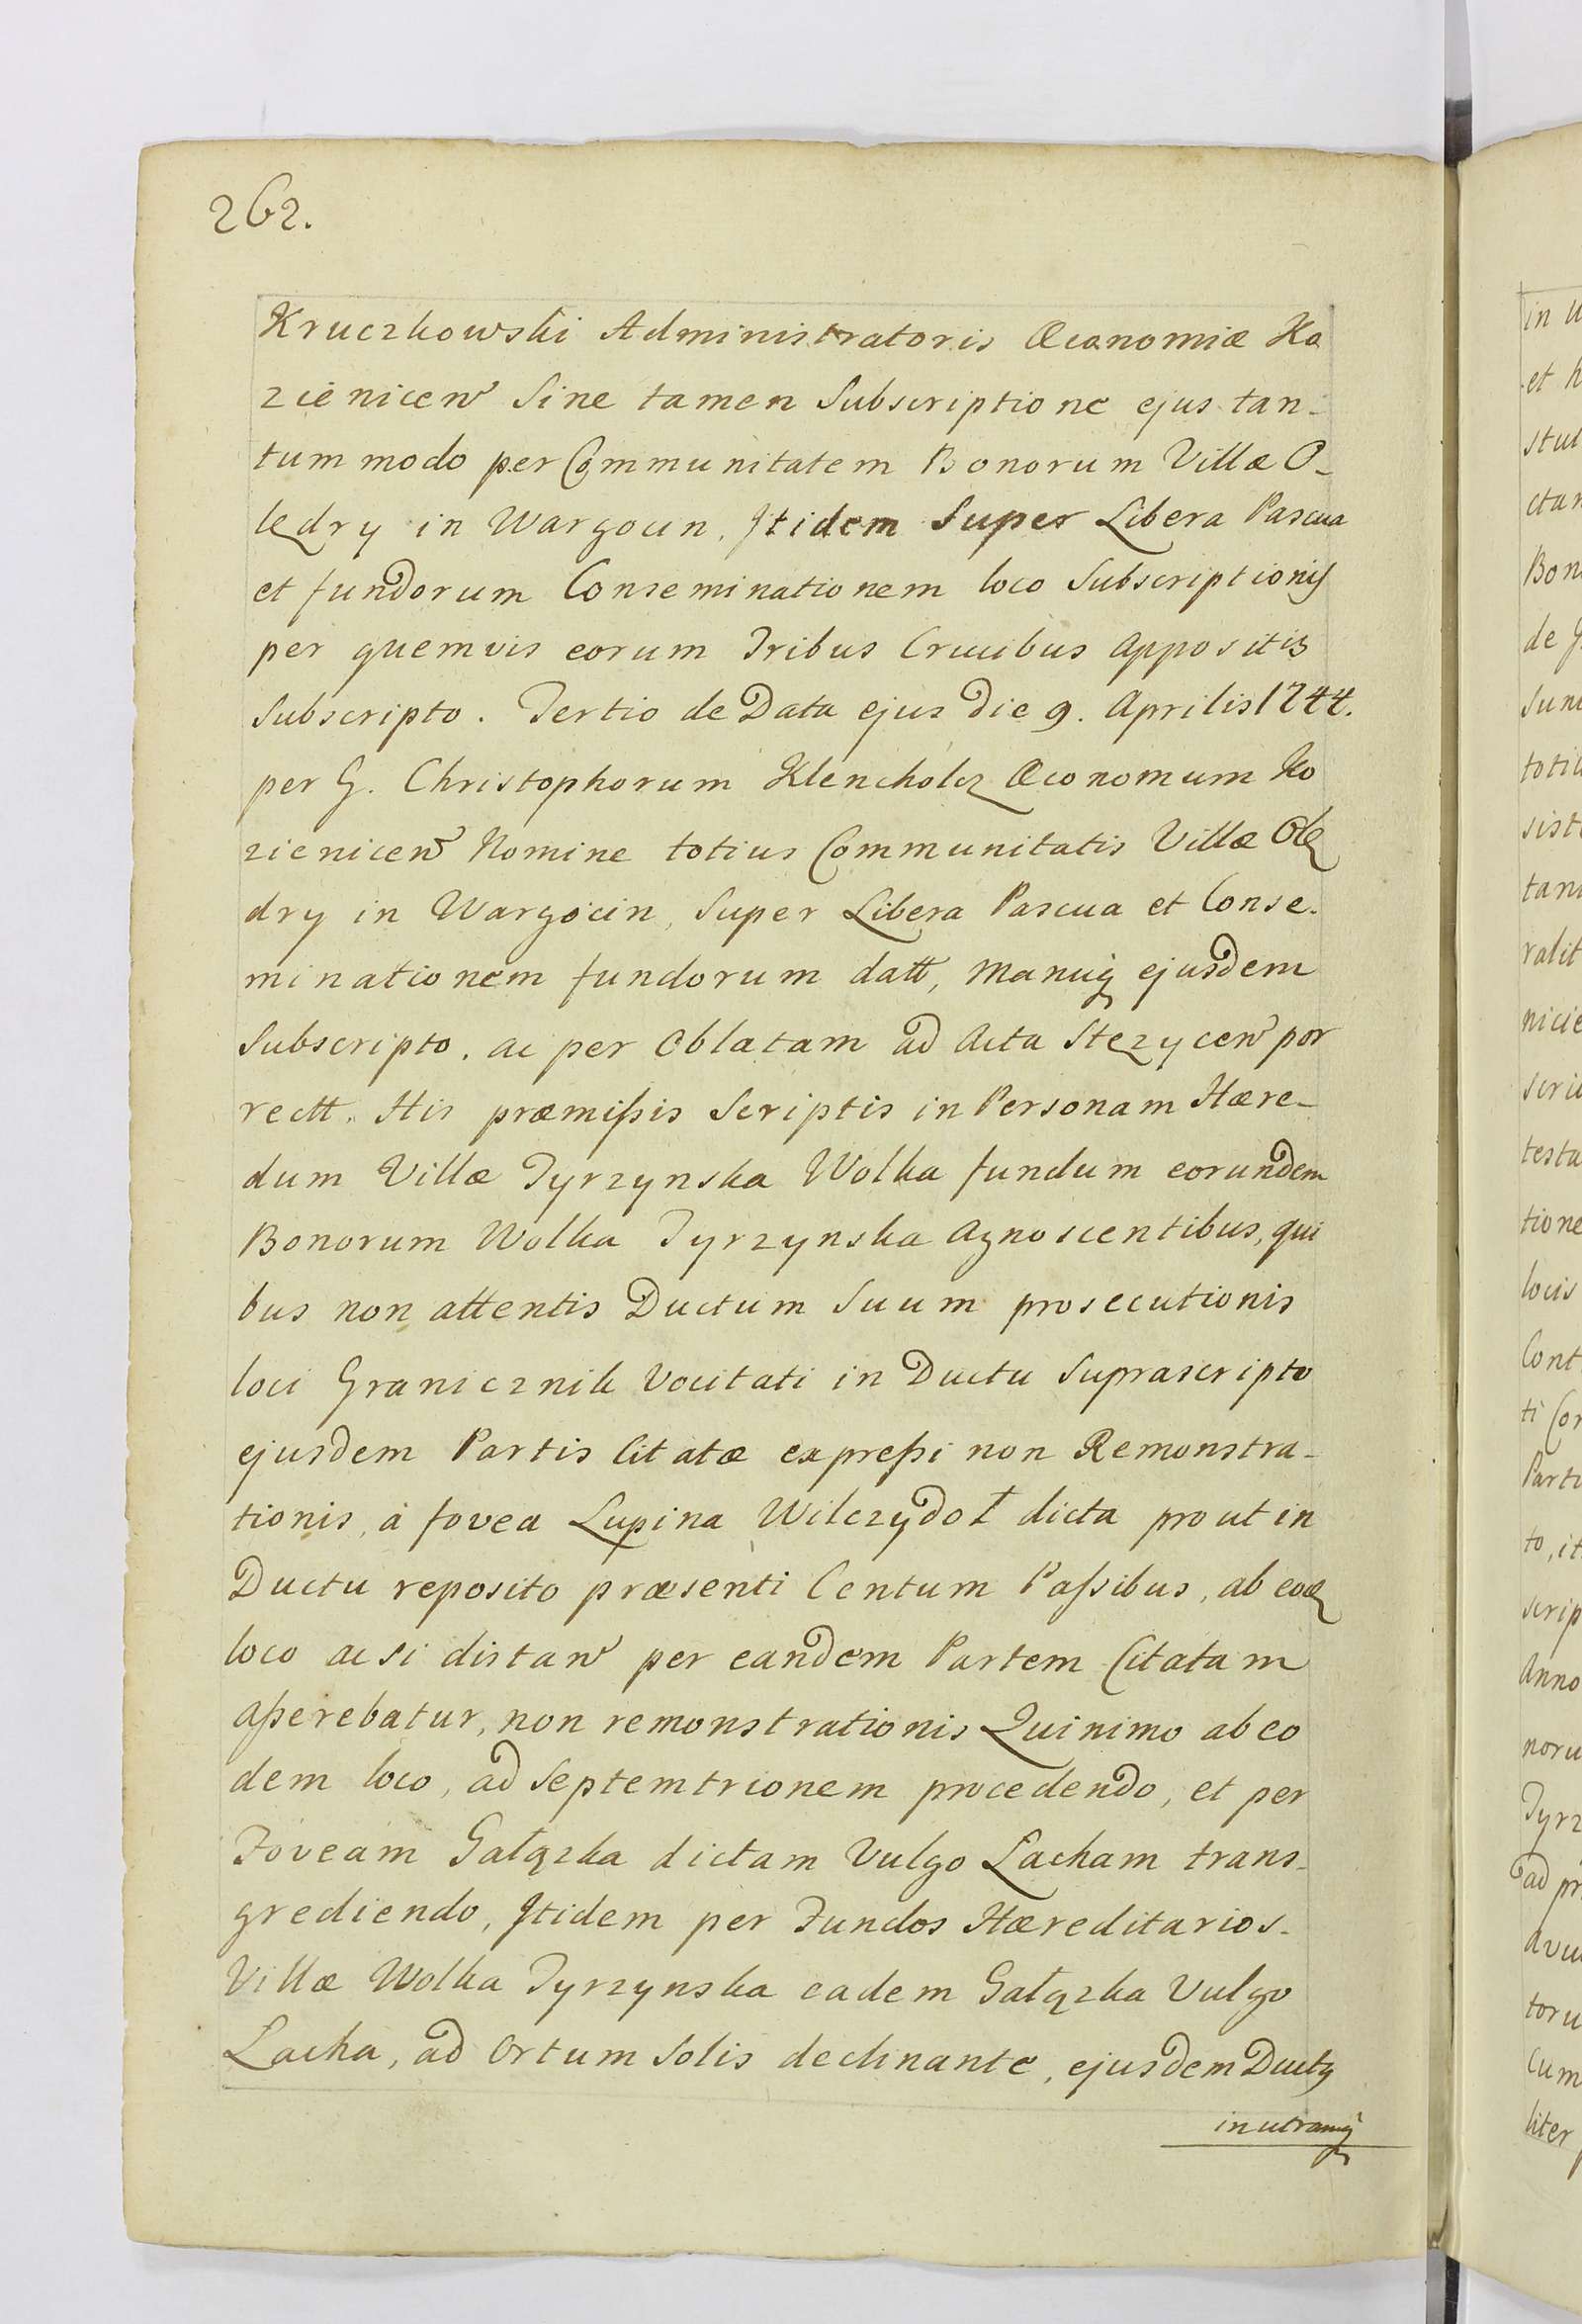 262.
Kruczkowski Administratoris Œconomiæ Ko
zieniceñ Sine tamen Subscriptione ejus tan-
tum modo per Communitatem Bonorum Villæ O-
lędry in Wargocin, Itidem Super Libera Pascua
et fundorum Conseminationem loco Subscriptionis
per quemvis eorum Tribus Crucibus appositis
Subscripto. Tertio de Data ejus die 9. Aprilis 1744.
per G. Christophorum Klencholcz Œconomum Ko
zieniceñ Nomine totius Communitatis Villæ Olę
dry in Wargocin, Super Libera Pascua et Conse-
minationem fundorum datt, manuq ejusdem
Subscripto. ac per Oblatam ad Acta Stezyceñ por
rectt. His præmissis Scriptis in Personam Hære-
dum Villæ Tyrzynska Wolka fundum eorundem
Bonorum Wolka Tyrzynska agnoscentibus, qui
bus non attentis Ductum Suum prosecutionis
loci Granicznik Vocitati in Ductu Suprascripto
ejusdem Partis Citatæ expressi non Remonstra-
tionis, à fovea Lupina Wilczydoł dicta prout in
Ductu reposito præsenti Centum Passibus, ab
loco ac si distañ per eandem Partem Citatam
asserebatur, non remonstrationis Quinimo ab eo
dem loco, ad Septemtrionem procedendo, et per
Foveam Gałązka dictam Vulgo Lacham trans-
grediendo, Itidem per Fundos Hæreditarios.
Villæ Wolka Tyrzynska eadem Gałązka Vulgo
Lacha, ad Ortum Solis declinante, ejusdem Ductq
in utramq
in
et
stul
ctan
Bon
de
sun
toti
sist
tan
ralit
nicie
scri
testa
tione
locis
Cont
ti Cor
Parti
to, it
scrip
Anno
noru
Tyrz
ad pr
toru
Cum
liter